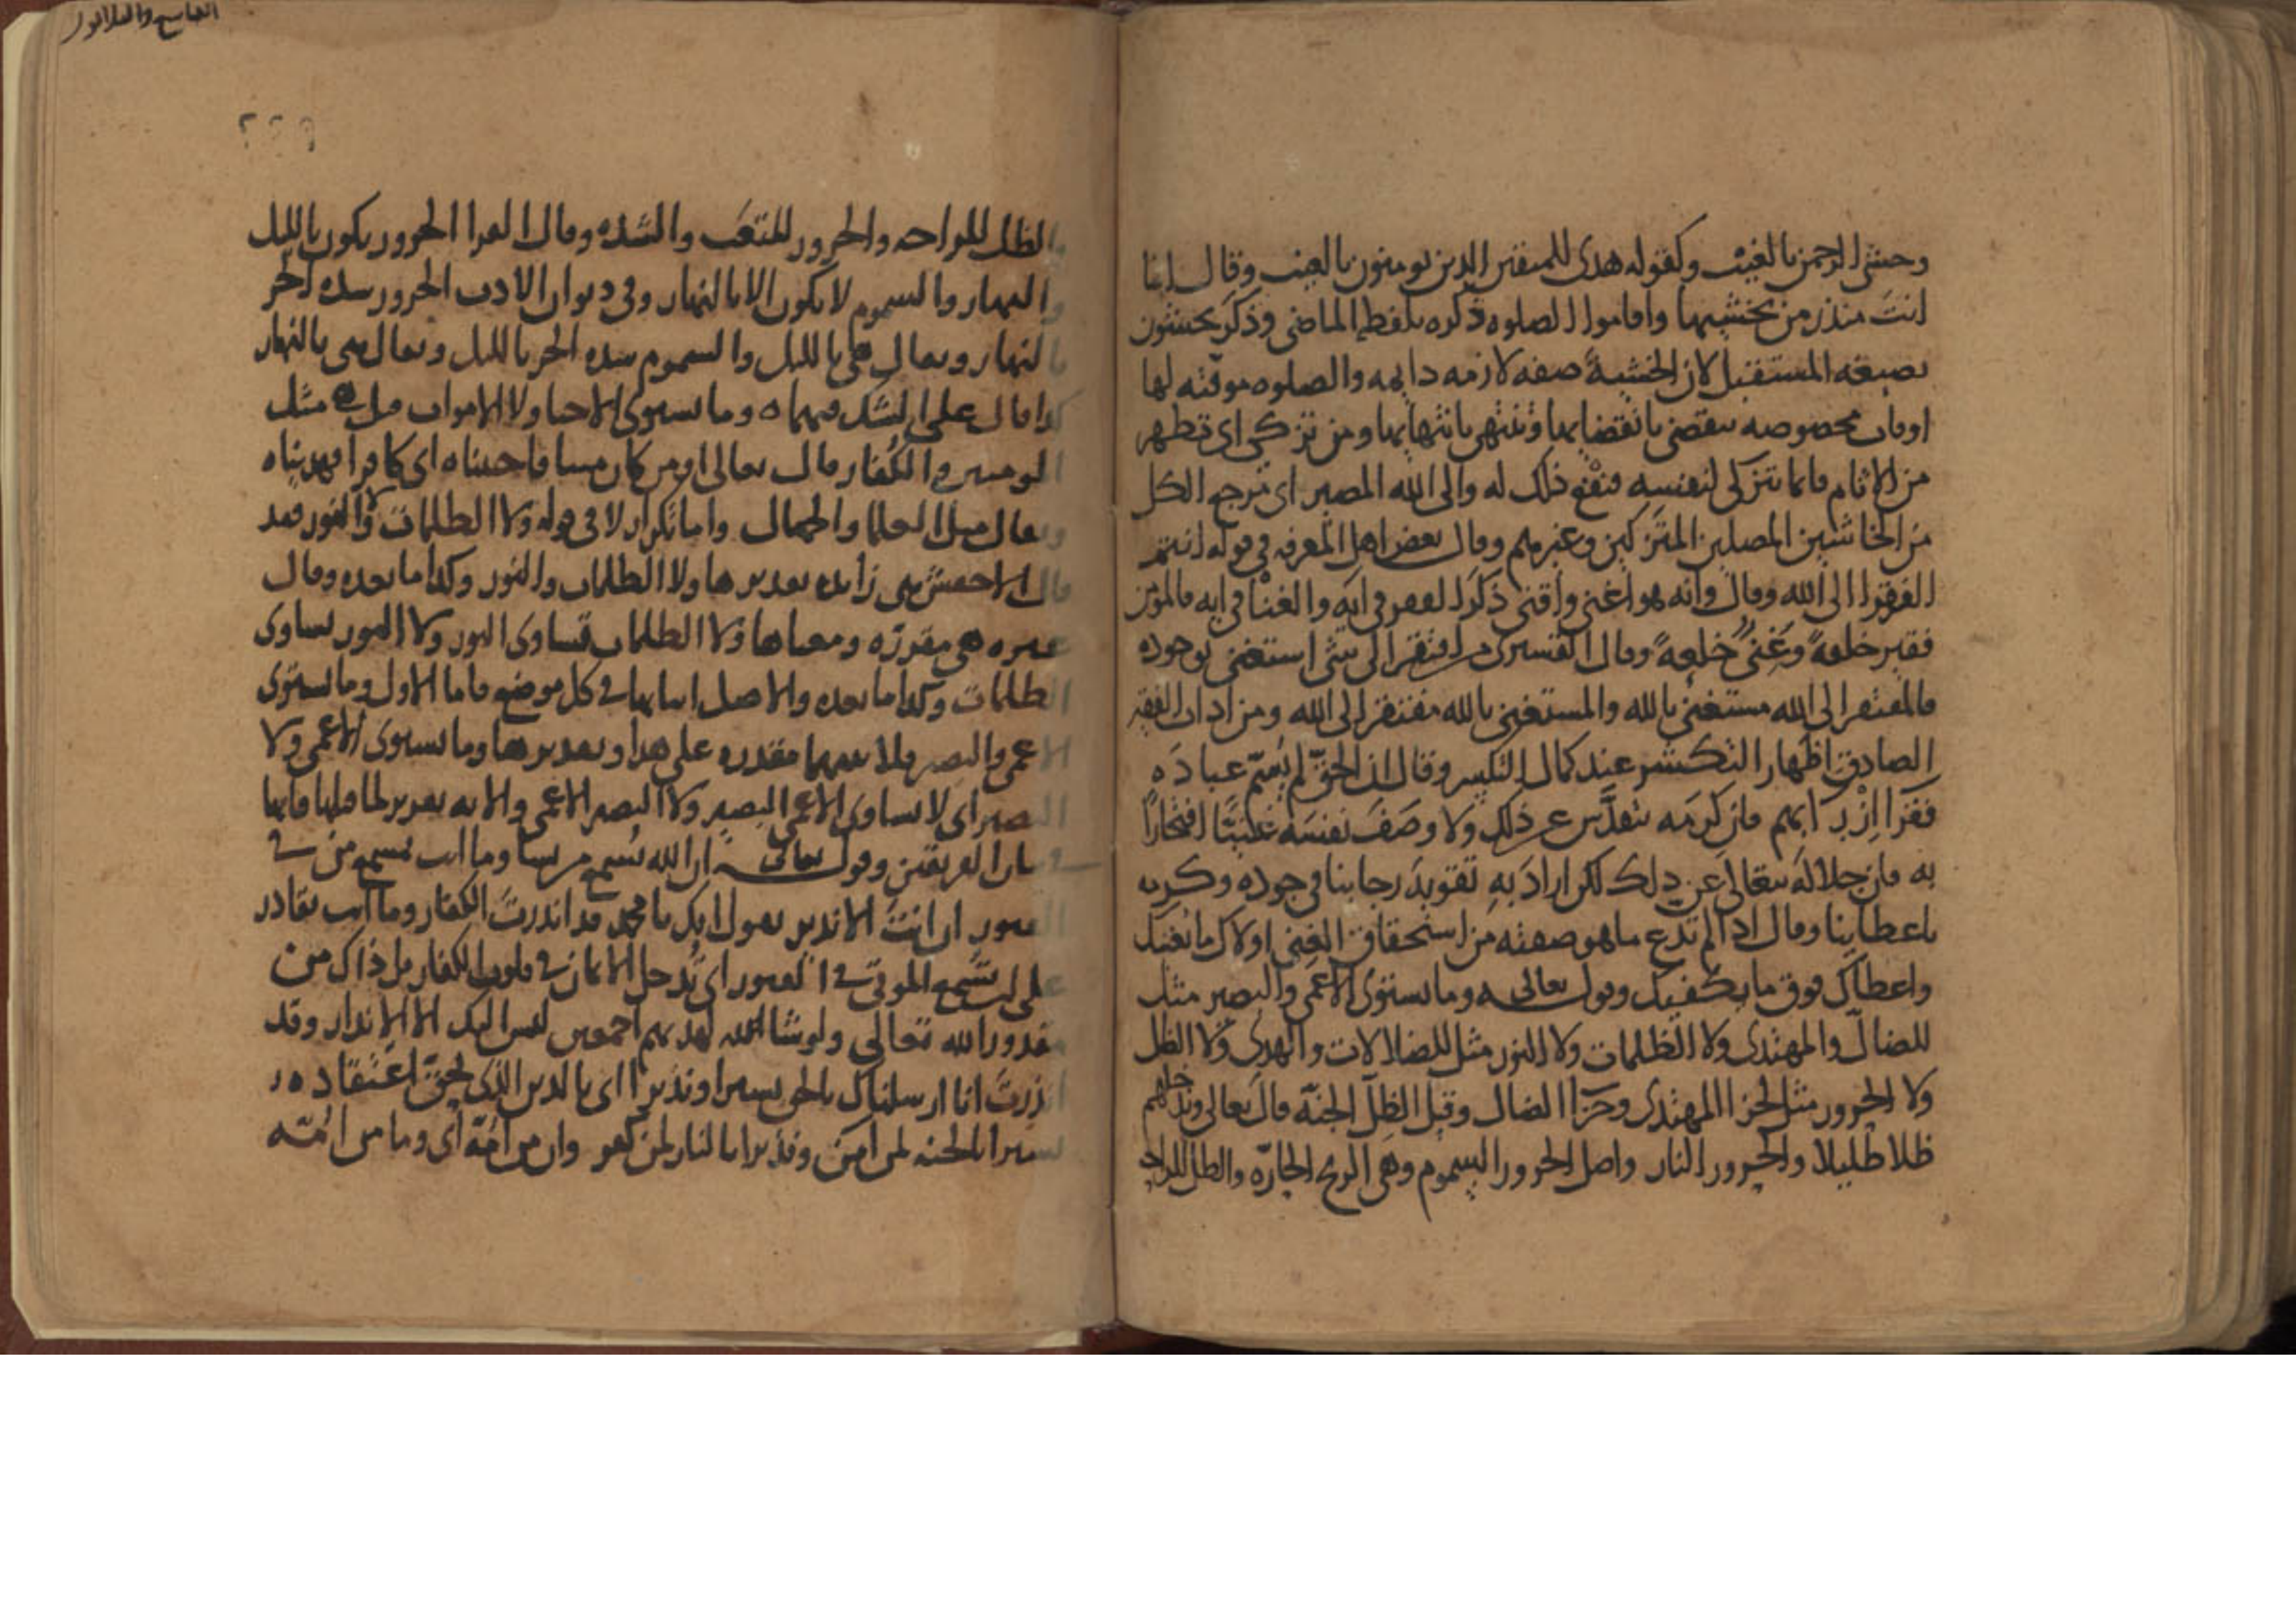 وخشي الرحمن بالغيب وكقوله هدى للمتقين الذين يومنون بالغيب وقال انما
انت منذر من يخشيها واقاموا الصلوه ذكره بلفظ الماضي وذكر يخشون
بصيغه المستقبل لان الخشيه صفه لازمه دايمه والصلوه موقته لها
اوقات مخصوصه تنقضي بانقضايها وتنتهي بانتهايها ومن تزكى اي تطهر
من الاثام فانما يتزكى لنفسه فنفع ذلك له والى الله المصير اي مرجع الكل
من الخاشين المصلين المتزكين وغيرهم وقال بعض اهل المعرفه في قوله انتم
الفقرا الى الله وقال وانه هو اغنى واقنى ذكر الفقر في ايه والغنا في ايه فالمومن
فقير خلقهً وغني خلعهً وقال القشيري من افتقر الى شي استغنى بوجوده
فالمفتقر الى الله مستغني بالله والمستغني بالله مفتقر الى الله ومن اداب الفقير
الصادق اظهار التكشر عند كمال التكسر وقال ان الحق لم يسم عباده
فقرا ازرا بهم فان كرمه يتقدس عن ذلك ولا وصف نفسه غنيا افتخارا
به فان جلاله يتعالى عن ذلك لكن اراد به تقويه رجاينا في جوده وكرمه
باعطاينا وقال اذا لم تدع ما هو صفته من استحقاق الغنى اولاك ما يغنيك
واعطاك فوق ما يكفيك وقوله تعالى وما يستوي الاعمى والبصير مثل
للضال والمهتدي ولا الظلمات ولا النور مثل للضلالات والهدى ولا الظل
ولا الحرور مثل لجزا المهتدي وجزا الضال وقيل الظل الجنه قال تعالى وندخلهم
ظلا ظليلا والحرور النار واصل الحرور السموم وهي الريح الحاره والظل للراحه
والظل للراحه والحرور للمتعب والشده وقال الفرا الحرور يكون بالليل
والنهار والسموم لا يكون الا بالنهار وفي ديوان الادب الحرور شده الحر
بالنهار ويقال هي بالليل والسموم شده الحر بالليل ويقال هي بالنهار
كذا قال على الشك فيهما ه وما يستوي الاحيا ولا الاموات قيل مثل
المومنين والكفار قال تعالى اومن كان ميتا فاحييناه اي كافرا فهديناه
ويقال مثل العلما والجهال واما تكرار لا في قوله ولا الظلمات ولا النور فقد
قال الاخفش هي زايده تقديرها ولا الظلمات والنور وكذا ما بعده وقال
غيره هي مقرره ومعناها ولا الظلمات تساوي النور ولا النور يساوي
الظلمات وكذا ما بعده والاصل اثباتها في كل موضع فاما الاول وما يستوي
الاعمى والبصير فلا بينهما مقدره على هذا وتقديرها وما يستوي الاعمى ولا
البصير اي لا يساوي الاعمى البصير ولا البصير الاعمى والايه تقرير لما قبلها فانها
في شان الفريقين وقوله تعالى ان الله يسمع من يشا وما انت بمسمع من في
القبور ان انت الا نذير يقول انك يا محمد قد انذرت الكفار وما انت بقادر
على ان تسمع الموتى في القبور اي تدخل الايمان في قلوب الكفار بل ذاك من
مقدور الله تعالى ولو شا الله لهديهم اجمعين ليس اليك الا الانذار وقد
انذرت انا ارسلناك بالحق بشيرا ونذيرا اي بالدين الذي يحق اعتقاده
بشيرا بالجنه لمن امن ونذيرا بالنار لمن كفر وان من امه اي وما من امه